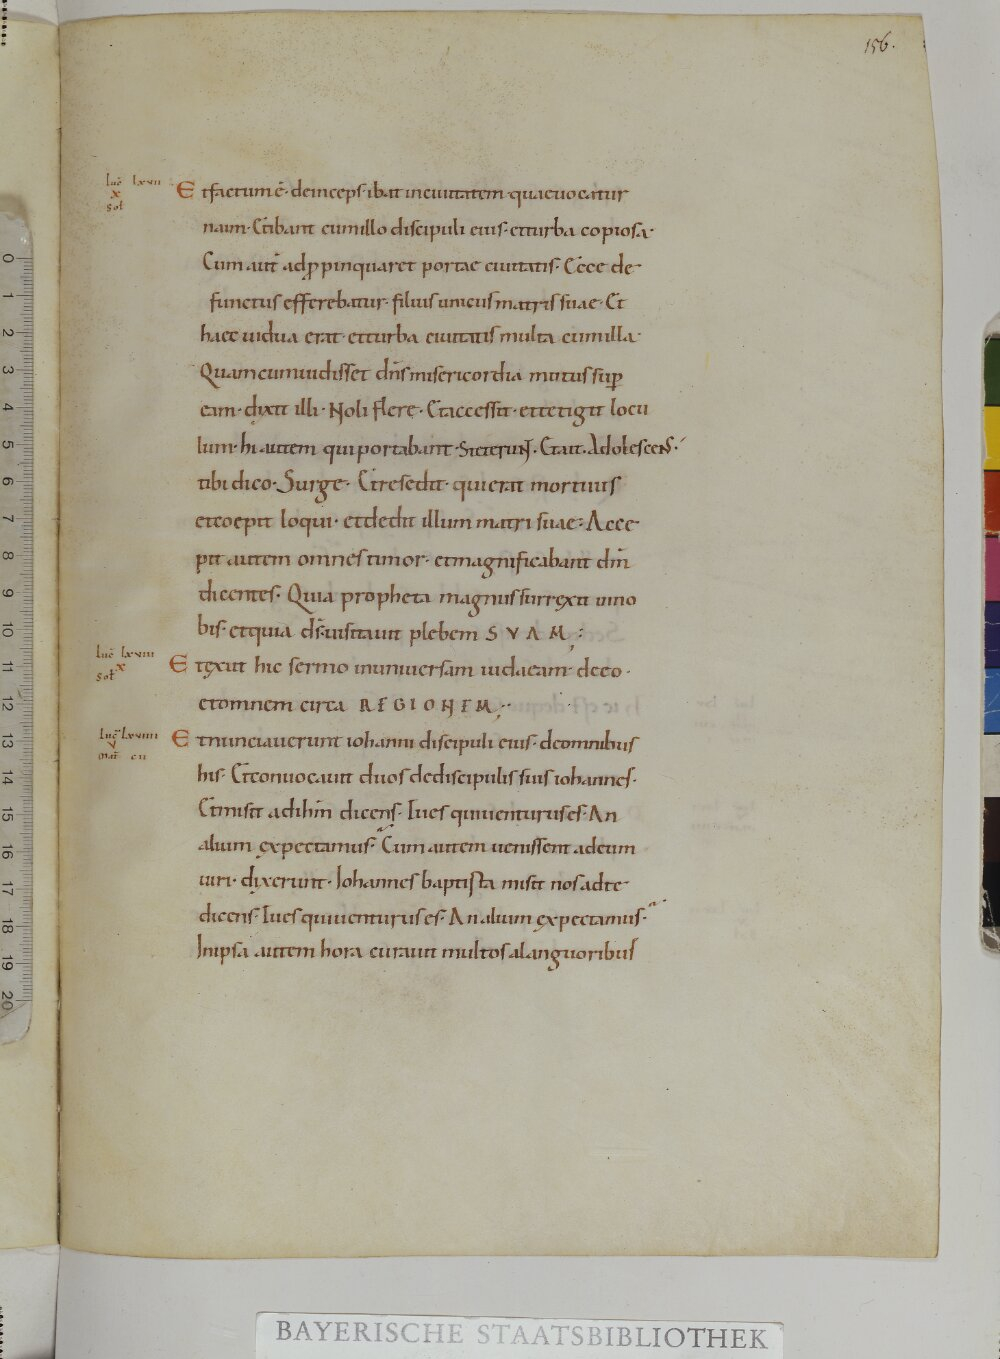 156.
luc̄ lxvii
x
sol
Et factum ē· deinceps ibat in ciuitatem· quae uocatur
naim· Et ibant cum illo discipuli eius· et turba copiosa·
Cum aut̄ adp̱pinquaret portae ciuitatis· Ecce de
functus efferebatur· filius unicus matris suae· Et
haec uidua erat· et turba ciuitatis multa cum illa·
Quam cum uidisset dn̄s misericordia motus sup̱
eam· dixit illi· Noli flere· Et accessit· et tetigit locu
lum· hi autem qui portabant· SteterUN̄T· Et ait· AdolescenS·
tibi dico· Surge· Et resedit· qui erat mortuus
et coepit loqui· et dedit illum matri suae· Acce
pit autem omnes timor· et magnificabant dm̄
dicentes· Quia propheta magnus surrexit in no
bis· et quia d̄s uisitauit plebem SVAM;
luc̄ lxviii
x
sol
Et exiit hic sermo in uniuersam iudaeam de eo·
et omnem circa REGIONEM;
luc̄ lxviiii
v
mat̄ cii
Et nunciauerunt iohanni discipuli eius· de omnibus
his· Et conuocauit duos de discipulis suis iohannes·
Et misit ad ih̄m dicens· Tu es qui uenturus es· An
alium expectamus· Cum autem uenissent ad eum
uiri· dixerunt· Iohannes baptista misit nos ad te
dicens· Tu es qui uenturus es· An alium expectamus·
In ipsa autem hora curauit multos a languoribus
0
1
2
3
4
5
6
7
8
9
10
11
12
13
14
15
16
17
18
19
20
BAYERISCHE STAATSBIBLIOTHEK